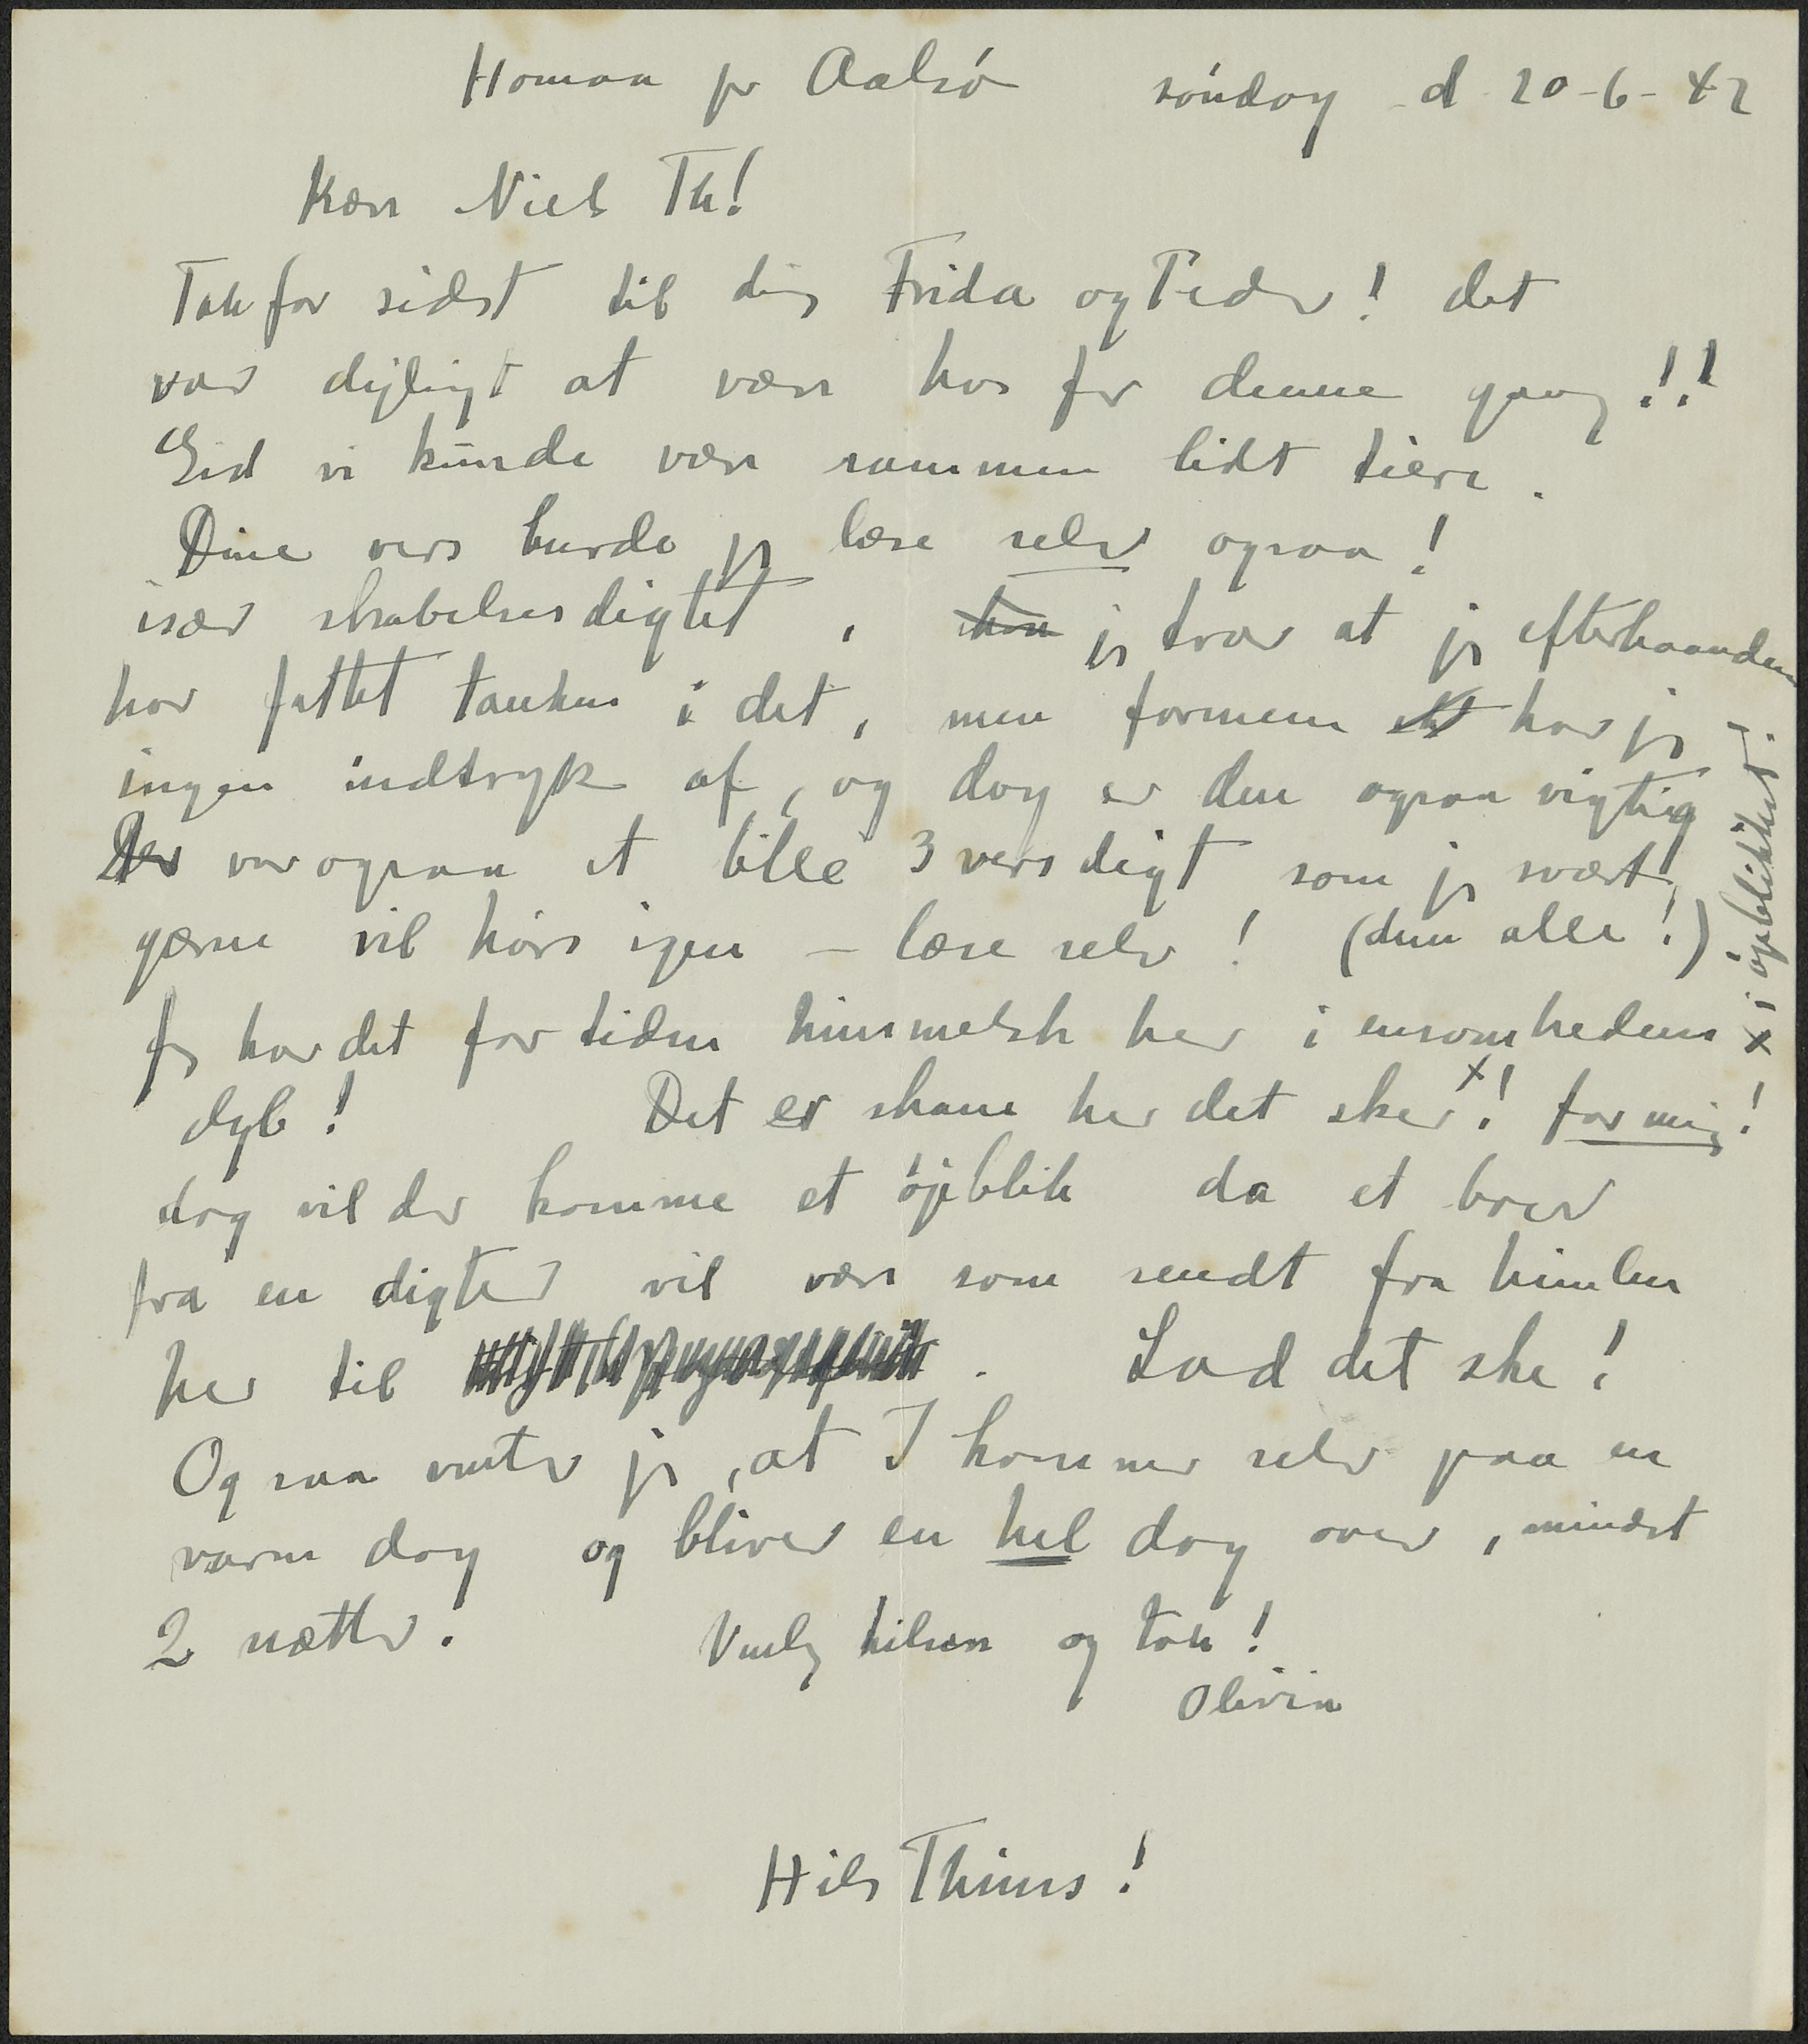 Homaa pr Aalsø søndag d 20-6-42
Kære Niels Th!
Tak for sidst til dig Frida og Peder! det
var dejligt at være hos jer denne gang!!
Gid vi kunde være sammen lidt tiere.
Dine vers burde jeg læse selv ogsaa!
især skabelsesdigtet, jeg tror at jeg efterhaanden
har fattet tanken i det, men formen har jeg
ingen indtryk af, og dog er den ogsaa vigtig
Der var ogsaa et lille 3 vers digt som jeg svært
gerne vil høre igen – læse selv! (dem alle!)
Jeg har det for tiden himmelsk her i ensomhedens
dyb! Det er skam her det sker x! for mig!
dog vil der komme et øjeblik da et brev
fra en digter vil være som sendt fra himlen
her til . Lad det ske!
Og saa venter jeg, at I kommer selv paa en
varm dag og bliver en hel dag over, mindst
2 nætter. Venlig hilsen og tak!
Olivia
Hils Thims!
x i øjeblikket.